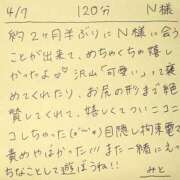 4/7 120分 N様
約2ヶ月半ぶりにN様に会う
ことが出来て、めちゃくちゃ嬉し
かったよ♡♡沢山「可愛い」って褒
めてくれたり、お尻の形まで絶
賛してくれて、ついついニコニ
コしちゃった(*´`*)目隠し拘束電マ
責めやばかった!!!また一緒にえっ
ちなことして遊ぼうね!!
みと